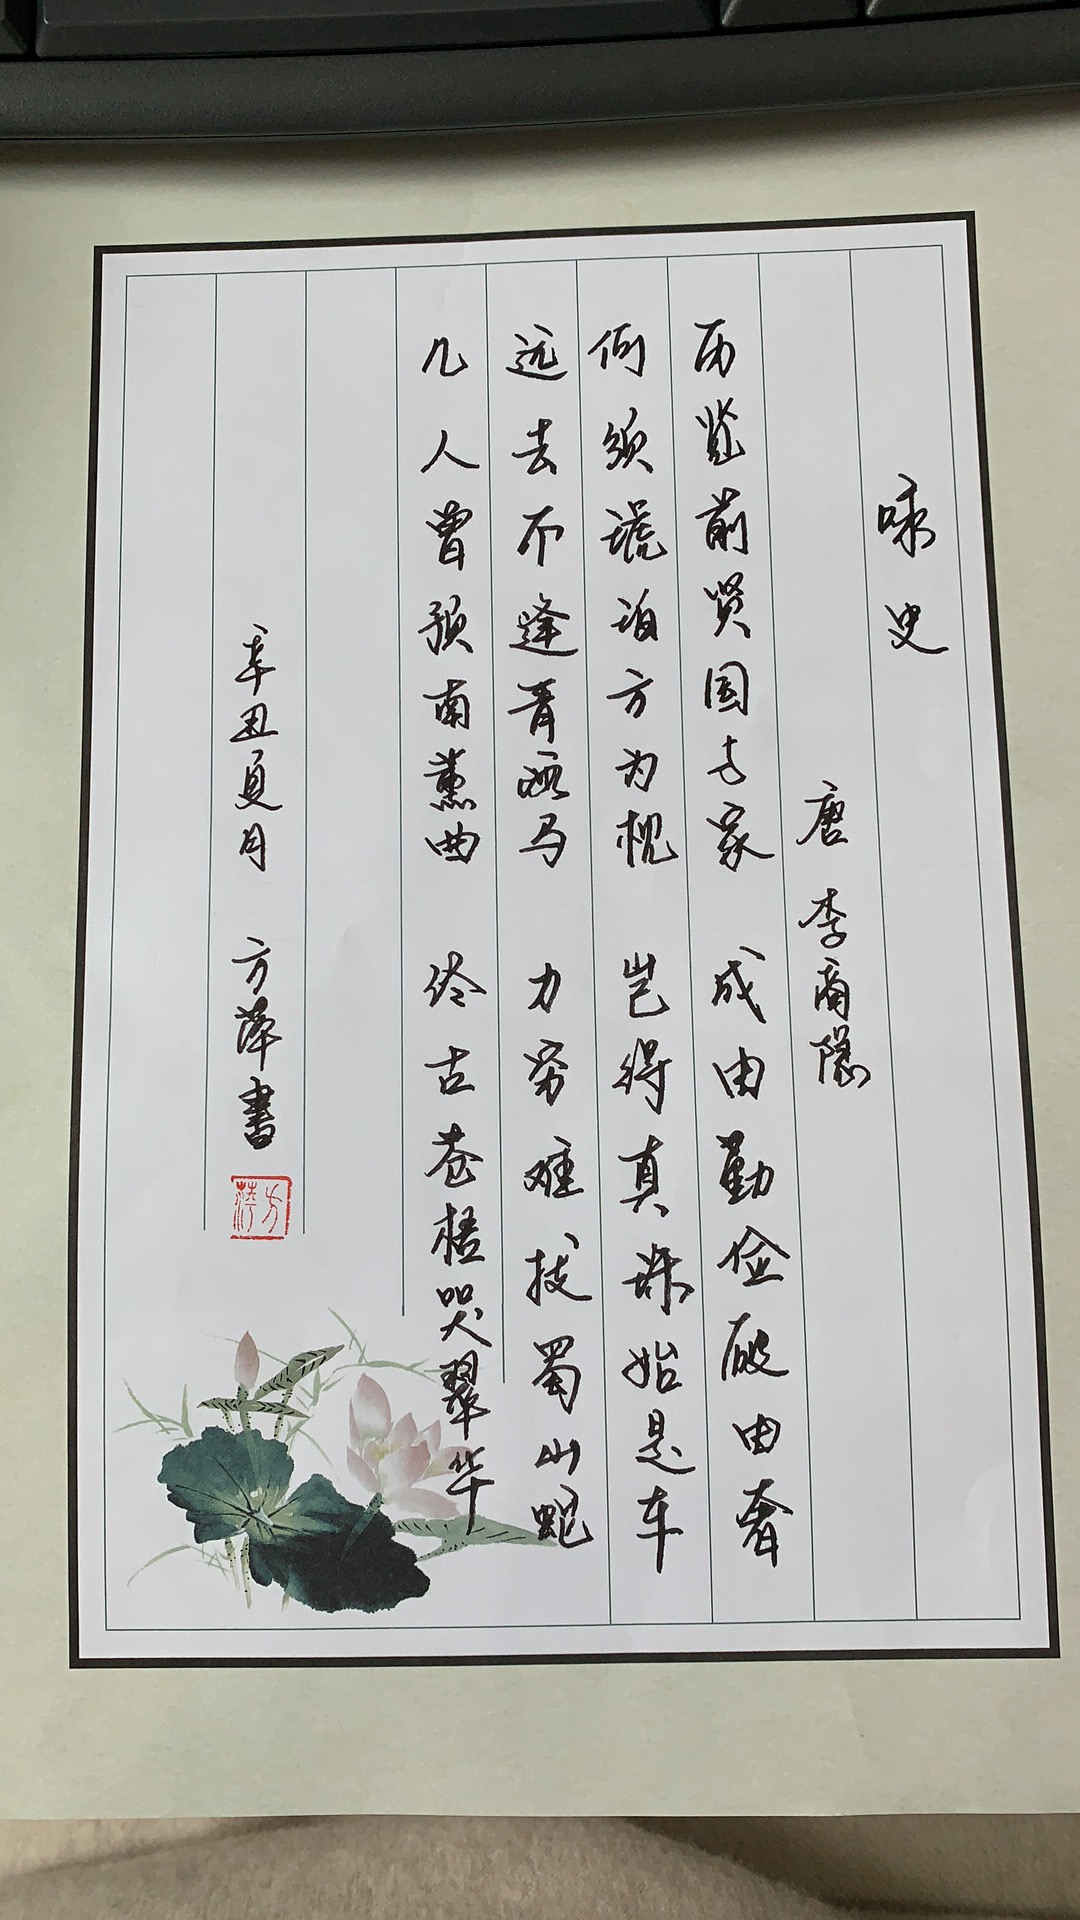 咏史
唐 李商隐
历览前贤国与家 成由勤俭破由奢
何须琥珀方为枕 岂得真珠始是车
远去不逢青海马 力穷难拔蜀山蛇
几人曾预南薰曲 终古苍梧哭翠华
辛丑夏月 方萍書
方萍